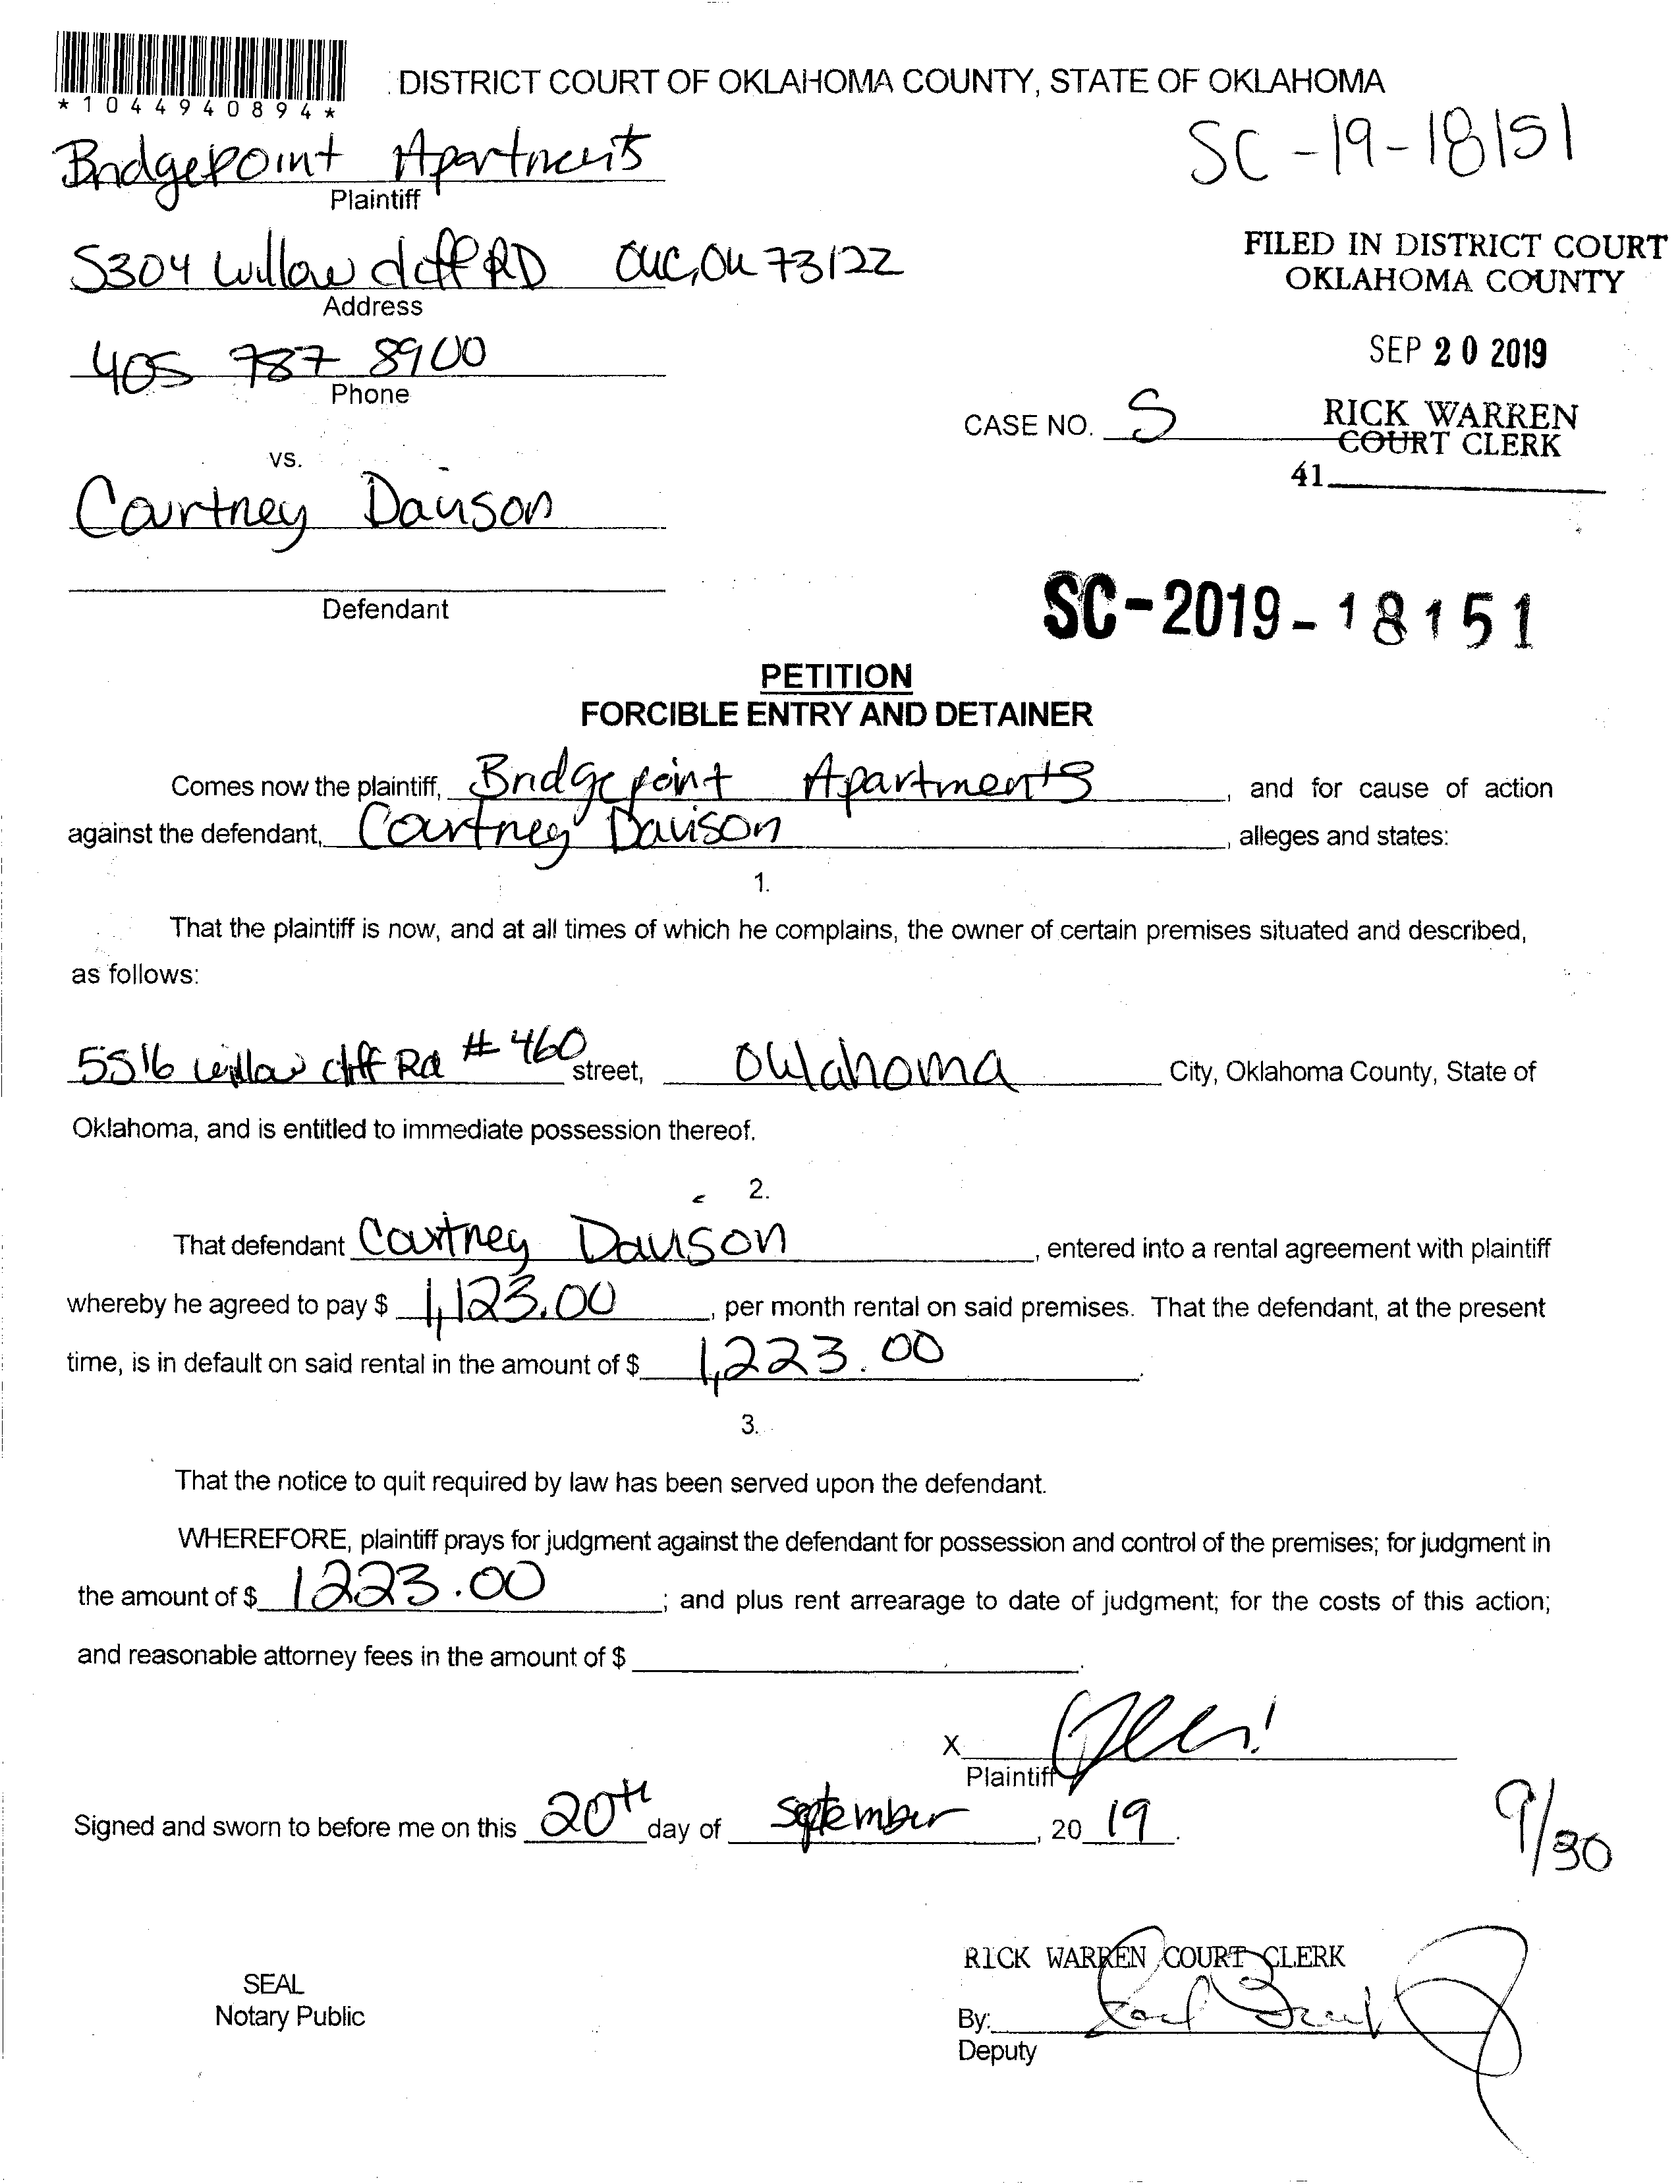 *1044940894*
DISTRICT COURT OF OKLAHOMA COUNTY, STATE OF OKLAHOMA
SC-19-18151
Bridgepoint Apartments
Plaintiff
5304 Willow cliff RD OKC, OK 73122
Address
FILED IN DISTRICT COURT
OKLAHOMA COUNTY
SEP 20 2019
405 787 8900
Phone
CASE NO. S
RICK WARREN
COURT CLERK
41
vs.
Courtney Davison
Defendant
SC-2019-18151
PETITION
FORCIBLE ENTRY AND DETAINER
Comes now the plaintiff, Bridgepoint Apartments, and for cause of action
against the defendant, Courtney Davison, alleges and states:
1.
That the plaintiff is now, and at all times of which he complains, the owner of certain premises situated and described,
as follows:
5516 willow cliff Rd # 460 street, Oklahoma City, Oklahoma County, State of
Oklahoma, and is entitled to immediate possession thereof.
2.
That defendant Courtney Davison, entered into a rental agreement with plaintiff
whereby he agreed to pay $ 1,123.00, per month rental on said premises. That the defendant, at the present
time, is in default on said rental in the amount of $ 1,223.00.
3.
That the notice to quit required by law has been served upon the defendant.
WHEREFORE, plaintiff prays for judgment against the defendant for possession and control of the premises; for judgment in
the amount of $ 1223.00; and plus rent arrearage to date of judgment; for the costs of this action;
and reasonable attorney fees in the amount of $ .
X
Plaintiff
Signed and sworn to before me on this 20th day of September, 20 19.
9/30
RICK WARREN COURT CLERK
SEAL
Notary Public
By:
Deputy